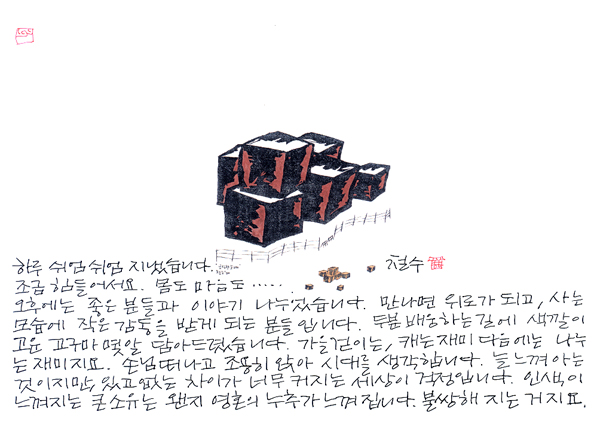 하루 쉬엄쉬엄 지냈습니다.
철수
조금 힘들어서요. 몸도 마음도·····
오후에는 좋은 분들과 이야기 나누었습니다. 만나면 위로가 되고, 사는
모습에 작은 감동을 받게 되는 분들입니다. 두분 배웅하는 길에 색깔이
고운 고구마 몇알 담아드렸습니다. 가을걷이는, 캐는 재미 다음에는 나누
는 재미지요. 손님 떠나고 조용히 앉아 시대를 생각합니다. 늘 느껴 아는
것이지만, 있고 없는 차이가 너무 커지는 세상이 걱정입니다. 인색이
느껴지는 큰 소유는 왠지 영혼의 누추가 느껴집니다. 불쌍해 지는 거지요.